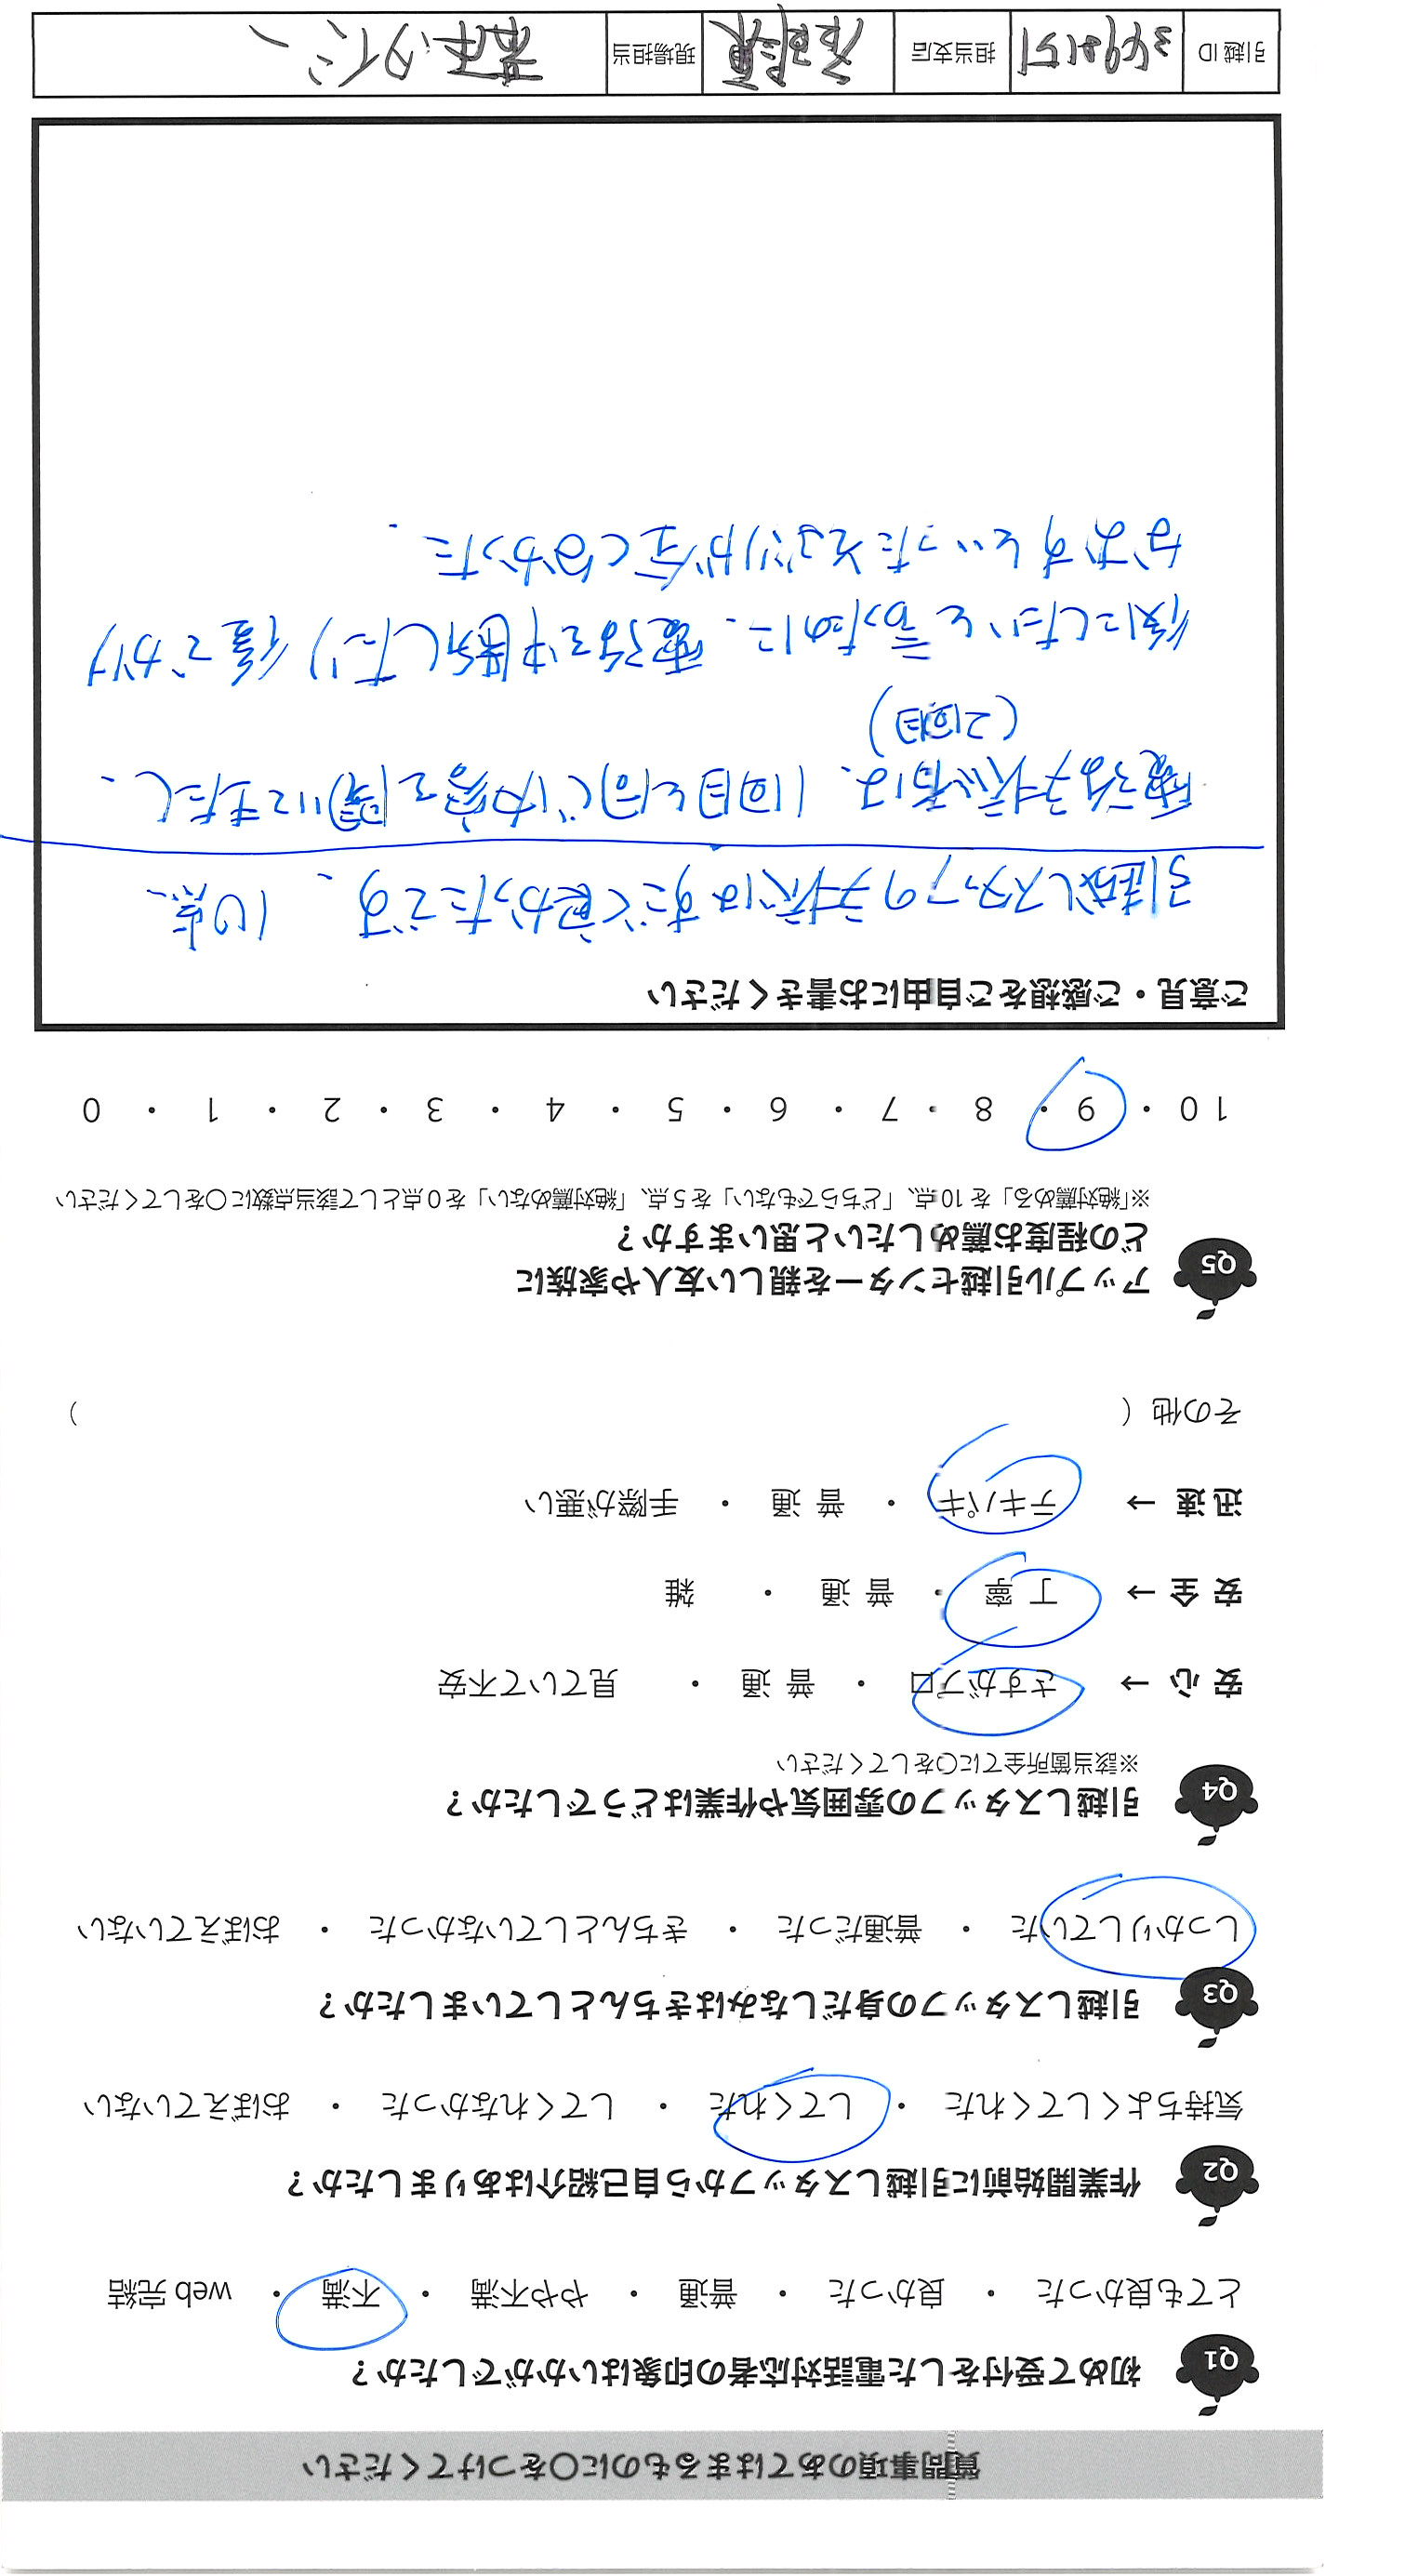 質問事項のあてはまるものに〇をつけてください
Q1 初めて受付をした電話対応者の印象はいかがでしたか？
とても良かった ・ 良かった ・ 普通 ・ やや不満 ・ 不満 ・ web 完結
Q2 作業開始前に引越しスタッフから自己紹介はありましたか？
気持ちよくしてくれた ・ してくれた ・ してくれなかった ・ おぼえていない
Q3 引越しスタッフの身だしなみはきちんとしていましたか？
しっかりしていた ・ 普通だった ・ きちんとしていなかった ・ おぼえていない
Q4 引越しスタッフの雰囲気や作業はどうでしたか？
※該当箇所全てに〇をしてください
安 心 → さすがプロ ・ 普 通 ・ 見ていて不安
安 全 → 丁 寧 ・ 普 通 ・ 雑
迅 速 → テキパキ ・ 普 通 ・ 手際が悪い
その他（ ）
Q5 アップル引越センターを親しい友人や家族に
どの程度お薦めしたいと思いますか？
※「絶対薦める」を 10 点、「どちらでもない」を 5 点、「絶対薦めない」を 0 点として該当点数に〇をしてください
10 ・ 9 ・ 8 ・ 7 ・ 6 ・ 5 ・ 4 ・ 3 ・ 2 ・ 1 ・ 0
ご意見・ご感想をご自由にお書きください
引越しスタッフの対応はすごく良かったです、 10点、
電話対応者は、1回目と同じ内容を聞いてきたし、
(2回目)
後にしたいと言ったのに、電話を中断したり後でかけ
なおすといったそぶりが全くなかった、
引越 ID
担当支店
現場担当